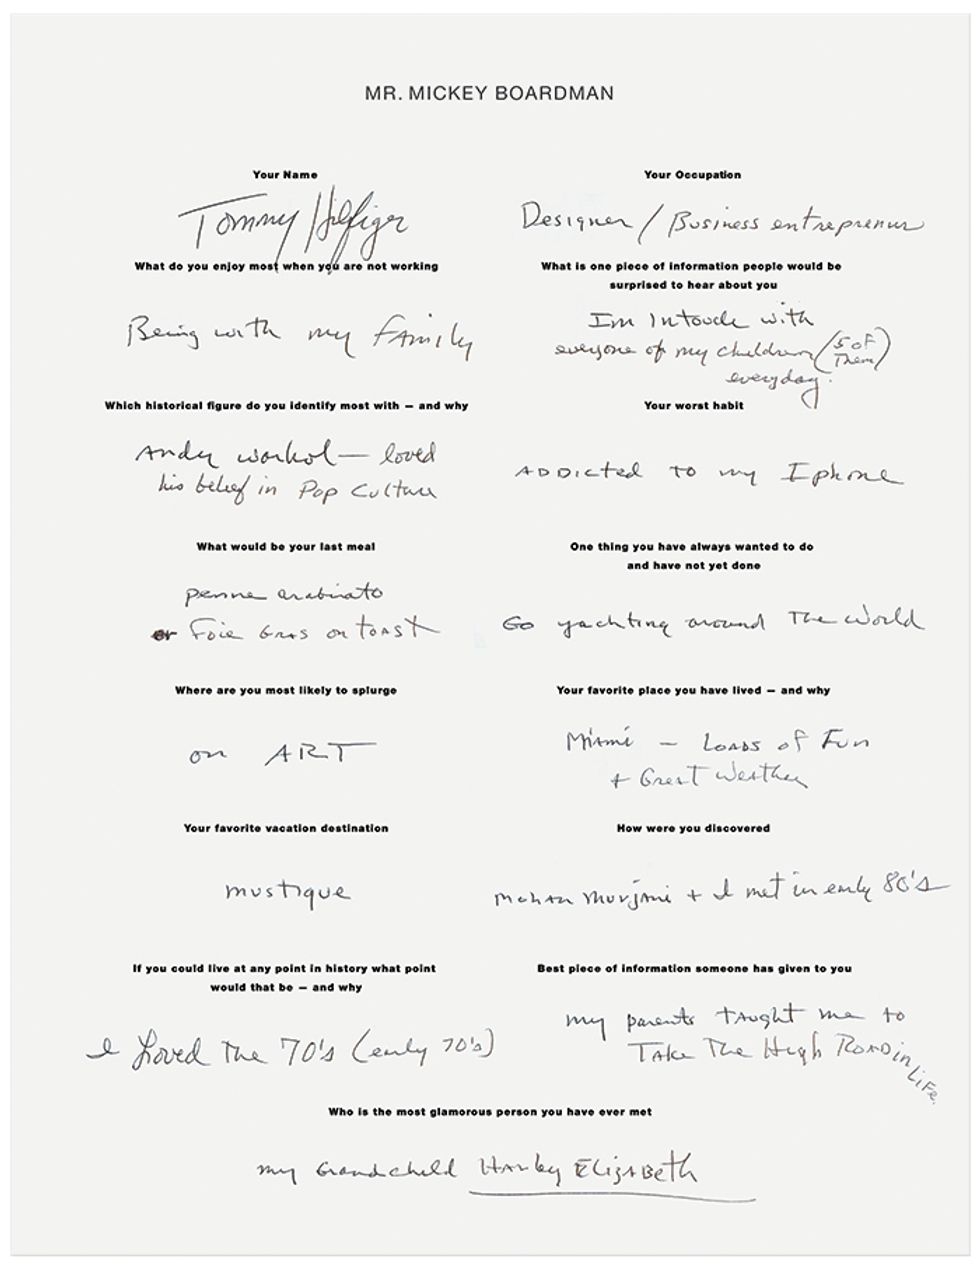 MR. MICKEY BOARDMAN
Your Name
Tommy Hilfiger
Your Occupation
Designer / Business entreprenur
What do you enjoy most when you are not working
Being with my Family
What is one piece of information people would be
surprised to hear about you
Im Intouch with
everyone of my children (5 of
Them)
everyday.
Which historical figure do you identify most with – and why
Andy warhol — loved
his belief in Pop Culture
Your worst habit
ADDicted TO my Iphone
What would be your last meal
penne arabiato
or Foie Gras on toAST
One thing you have always wanted to do
and have not yet done
Go yachting around The World
Where are you most likely to splurge
on ART
Your favorite place you have lived – and why
Miami – LOADS of Fun
+ Great Weather
Your favorite vacation destination
mustique
How were you discovered
Mohan Murjani + I met in early 80's
If you could live at any point in history what point
would that be – and why
I Loved The 70's (early 70's)
Best piece of information someone has given to you
my parents taught me to
Take The High ROAD in LiFe.
Who is the most glamorous person you have ever met
my Grandchild Harley ElizaBeth